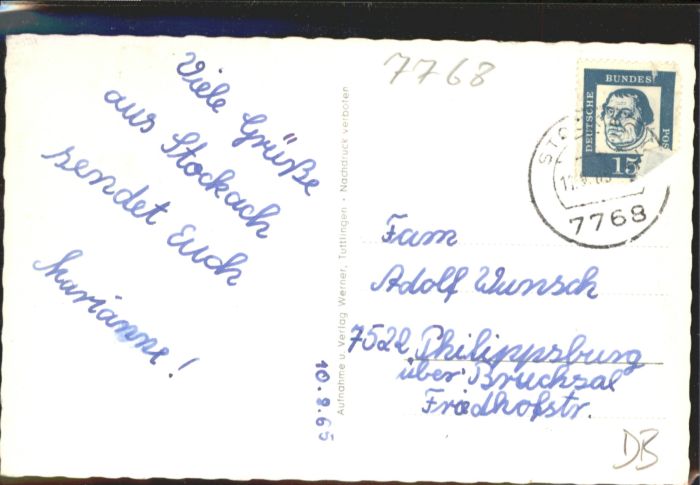 7768
Viele Grüße
aus Stockach
sendet Euch
Marianne!
10.9.65
Aufnahme u. Verlag Werner, Tuttlingen · Nachdruck verboten
DEUTSCHE
BUNDES
POS
15
7768
Fam
Adolf Wunsch
7522 Philippsburg
über Bruchsal
Friedhofstr.
DB